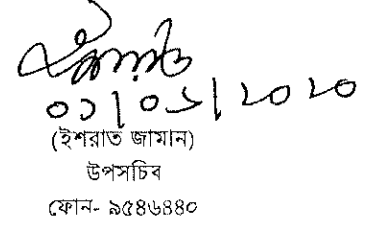 ০১|০১|২০২০
(ইশরাত জামান)
উপসচিব
ফোন- ৯৫৪৬৪৪০